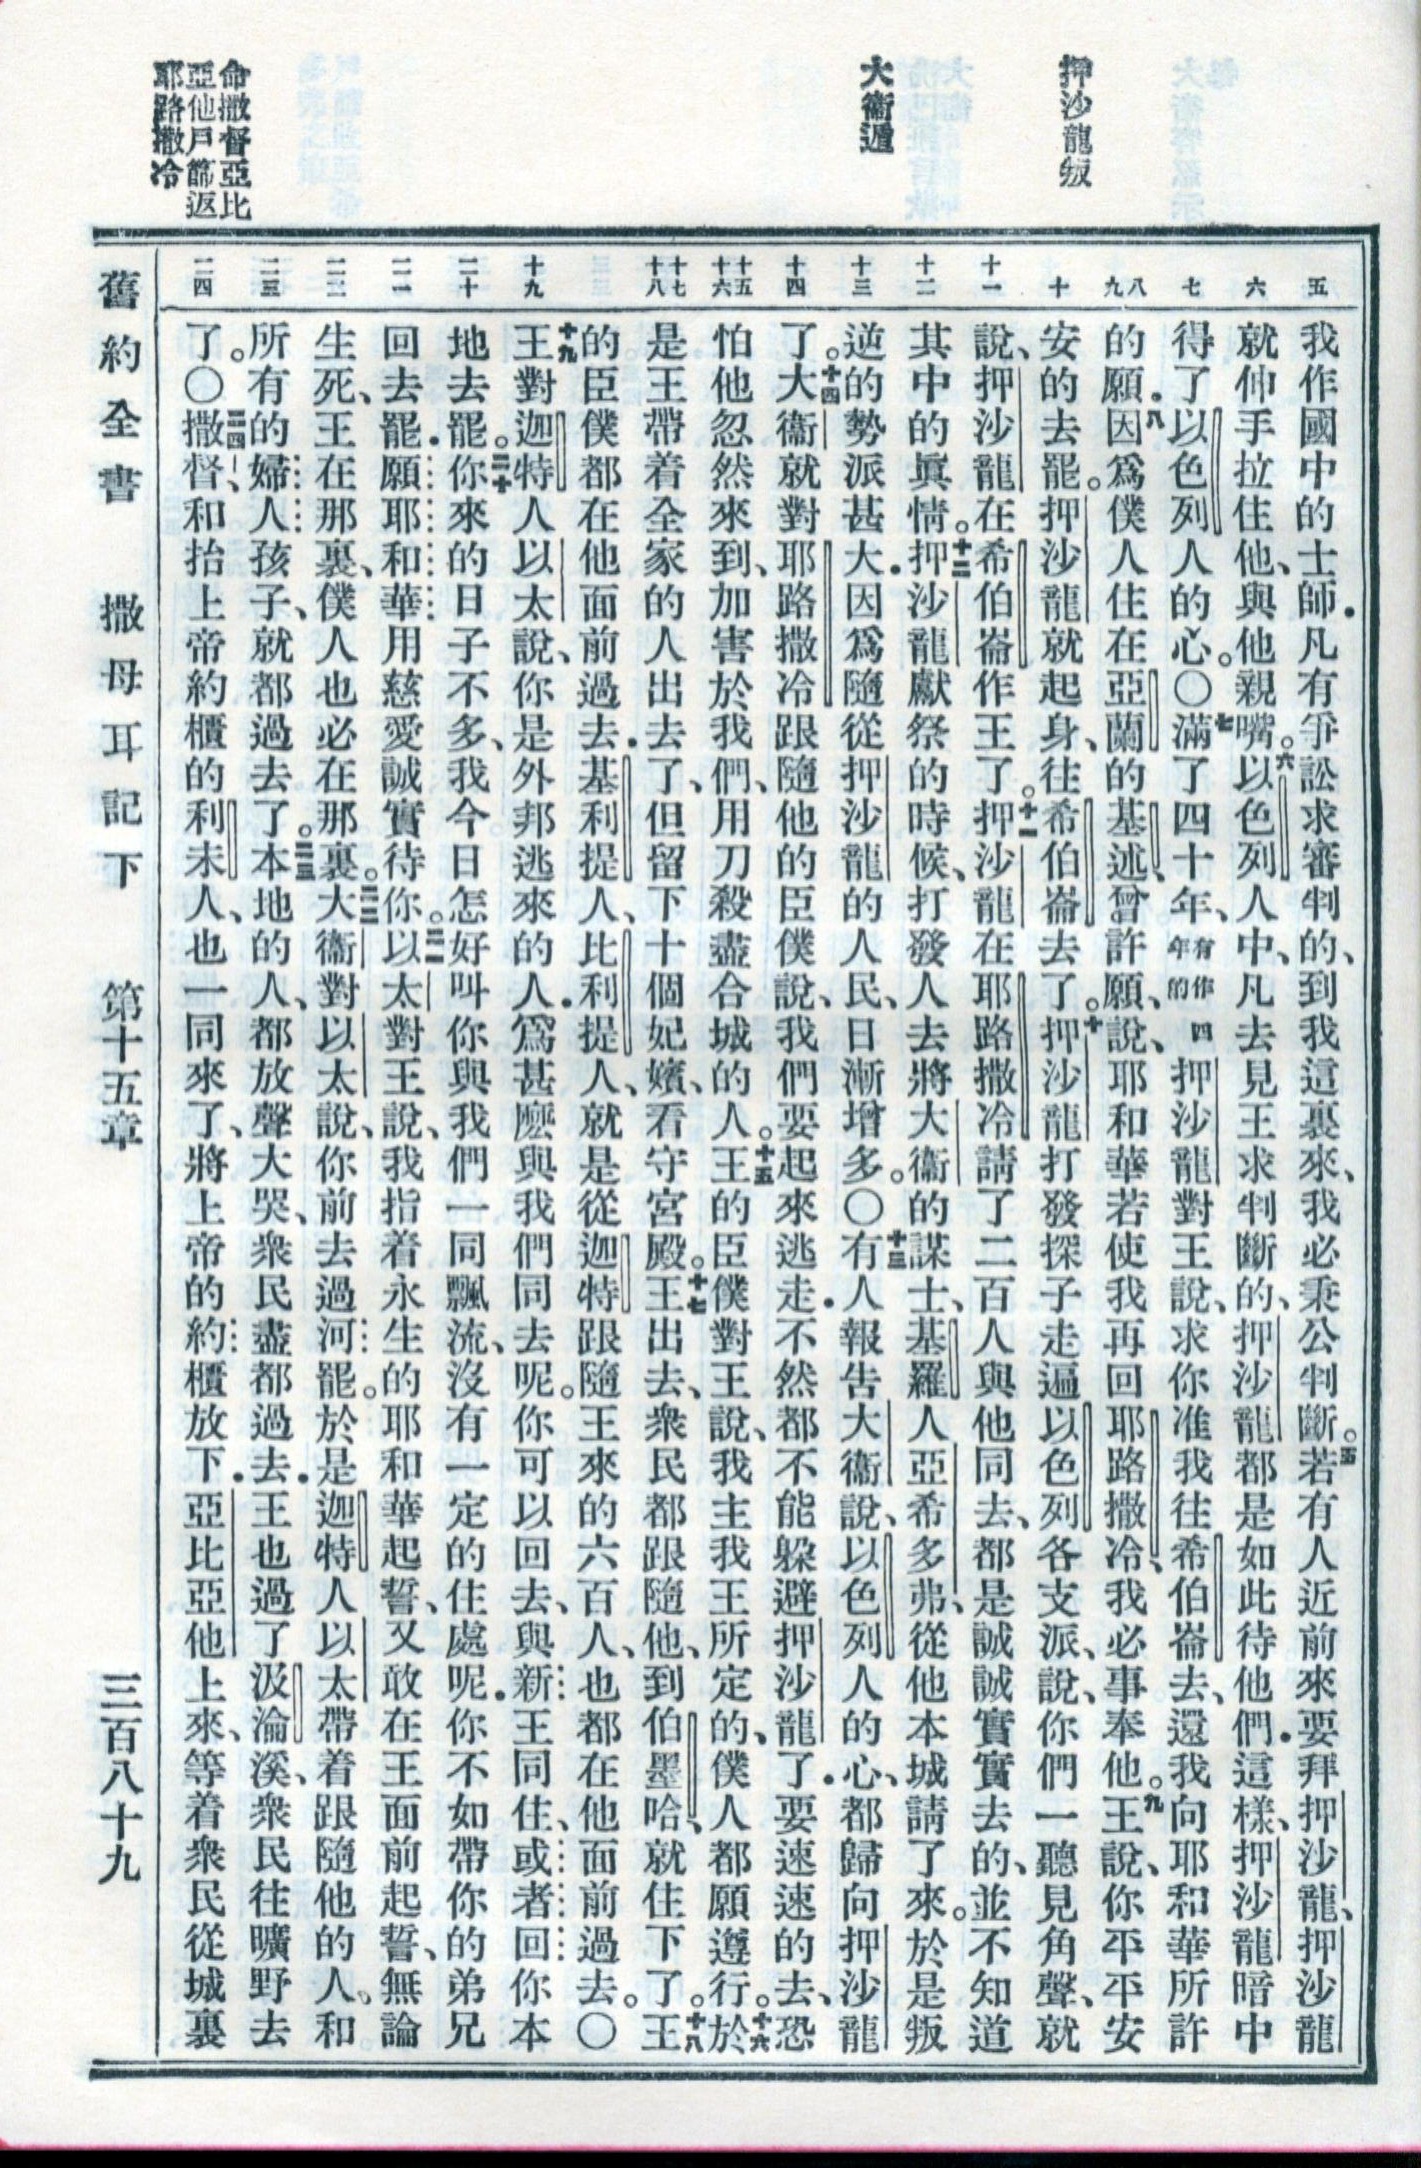 押沙龍叛
大衞遁
命撒督亞比
亞他戶篩返
耶路撒冷
五 六 七 八 九 十 十一 十二 十三 十四 十五 十六 十七 十八 十九 二十 二一 二二 二三 二四
我作國中的士師．凡有爭訟求審判的、到我這裏來、我必秉公判斷。五若有人近前來要拜押沙龍、押沙龍
就伸手拉住他、與他親嘴。六以色列人中、凡去見王求判斷的、押沙龍都是如此待他們．這樣、押沙龍暗中
得了以色列人的心。〇七滿了四十年、有作四年的押沙龍對王說、求你准我往希伯崙去、還我向耶和華所許
的願．八因爲僕人住在亞蘭的基述、曾許願、說、耶和華若使我再回耶路撒冷、我必事奉他。九王說、你平平安
安的去罷。押沙龍就起身、往希伯崙去了。十押沙龍打發探子走遍以色列各支派、說、你們一聽見角聲、就
說、押沙龍在希伯崙作王了。十一押沙龍在耶路撒冷請了二百人與他同去、都是誠誠實實去的、並不知道
其中的眞情。十二押沙龍獻祭的時候、打發人去將大衞的謀士、基羅人亞希多弗、從他本城請了來。於是叛
逆的勢派甚大．因爲隨從押沙龍的人民、日漸增多。〇十三有人報告大衞說、以色列人的心、都歸向押沙龍
了。十四大衞就對耶路撒冷跟隨他的臣僕說、我們要起來逃走．不然都不能躲避押沙龍了．要速速的去、恐
怕他忽然來到、加害於我們、用刀殺盡合城的人。十五王的臣僕對王說、我主我王所定的、僕人都願遵行。十六於
是王帶着全家的人出去了、但留下十個妃嬪、看守宮殿。十七王出去、衆民都跟隨他、到伯墨哈、就住下了。十八王
的臣僕都在他面前過去．基利提人、比利提人、就是從迦特跟隨王來的六百人、也都在他面前過去。〇
十九王對迦特人以太說、你是外邦逃來的人．爲甚麽與我們同去呢。你可以回去、與新王同住、或者回你本
地去罷。二十你來的日子不多、我今日怎好叫你與我們一同飄流、沒有一定的住處呢．你不如帶你的弟兄
回去罷．願耶和華用慈愛誠實待你。二一以太對王說、我指着永生的耶和華起誓、又敢在王面前起誓、無論
生死、王在那裏、僕人也必在那裏。二二大衞對以太說、你前去過河罷。於是迦特人以太帶着跟隨他的人、和
所有的婦人孩子、就都過去了。二三本地的人、都放聲大哭、衆民盡都過去．王也過了汲淪溪、衆民往曠野去
了。〇二四撒督、和抬上帝約櫃的利未人、也一同來了、將上帝的約櫃放下．亞比亞他上來、等着衆民從城裏
舊約全書 撒母耳記下 第十五章 三百八十九